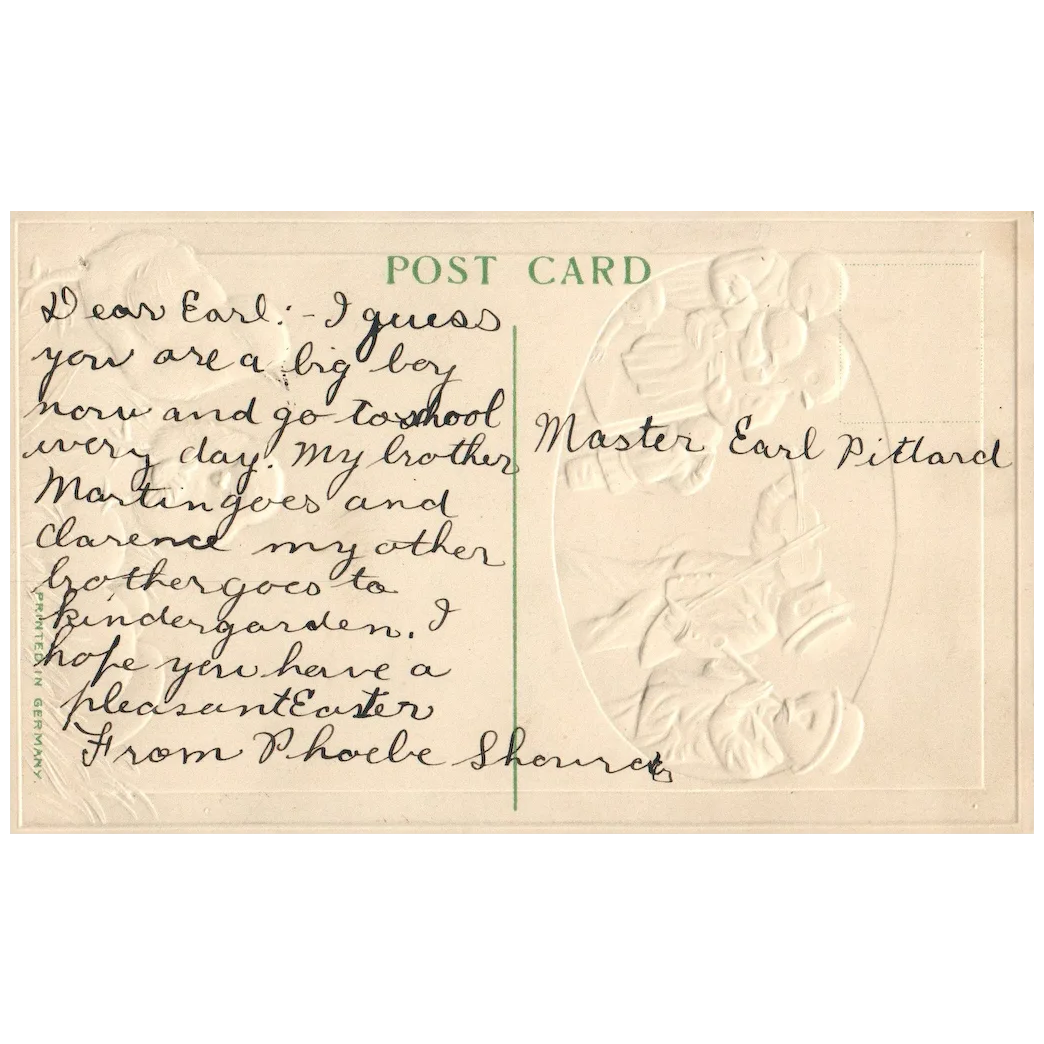 POST CARD
Dear Earl:- I guess
you are a big boy
now and go to school
every day. My brother
Martin goes and
Clarence my other
brother goes to
kindergarden. I
hope you have a
pleasant Easter
From Phoebe
Master Earl Pittard
PRINTED IN GERMANY.